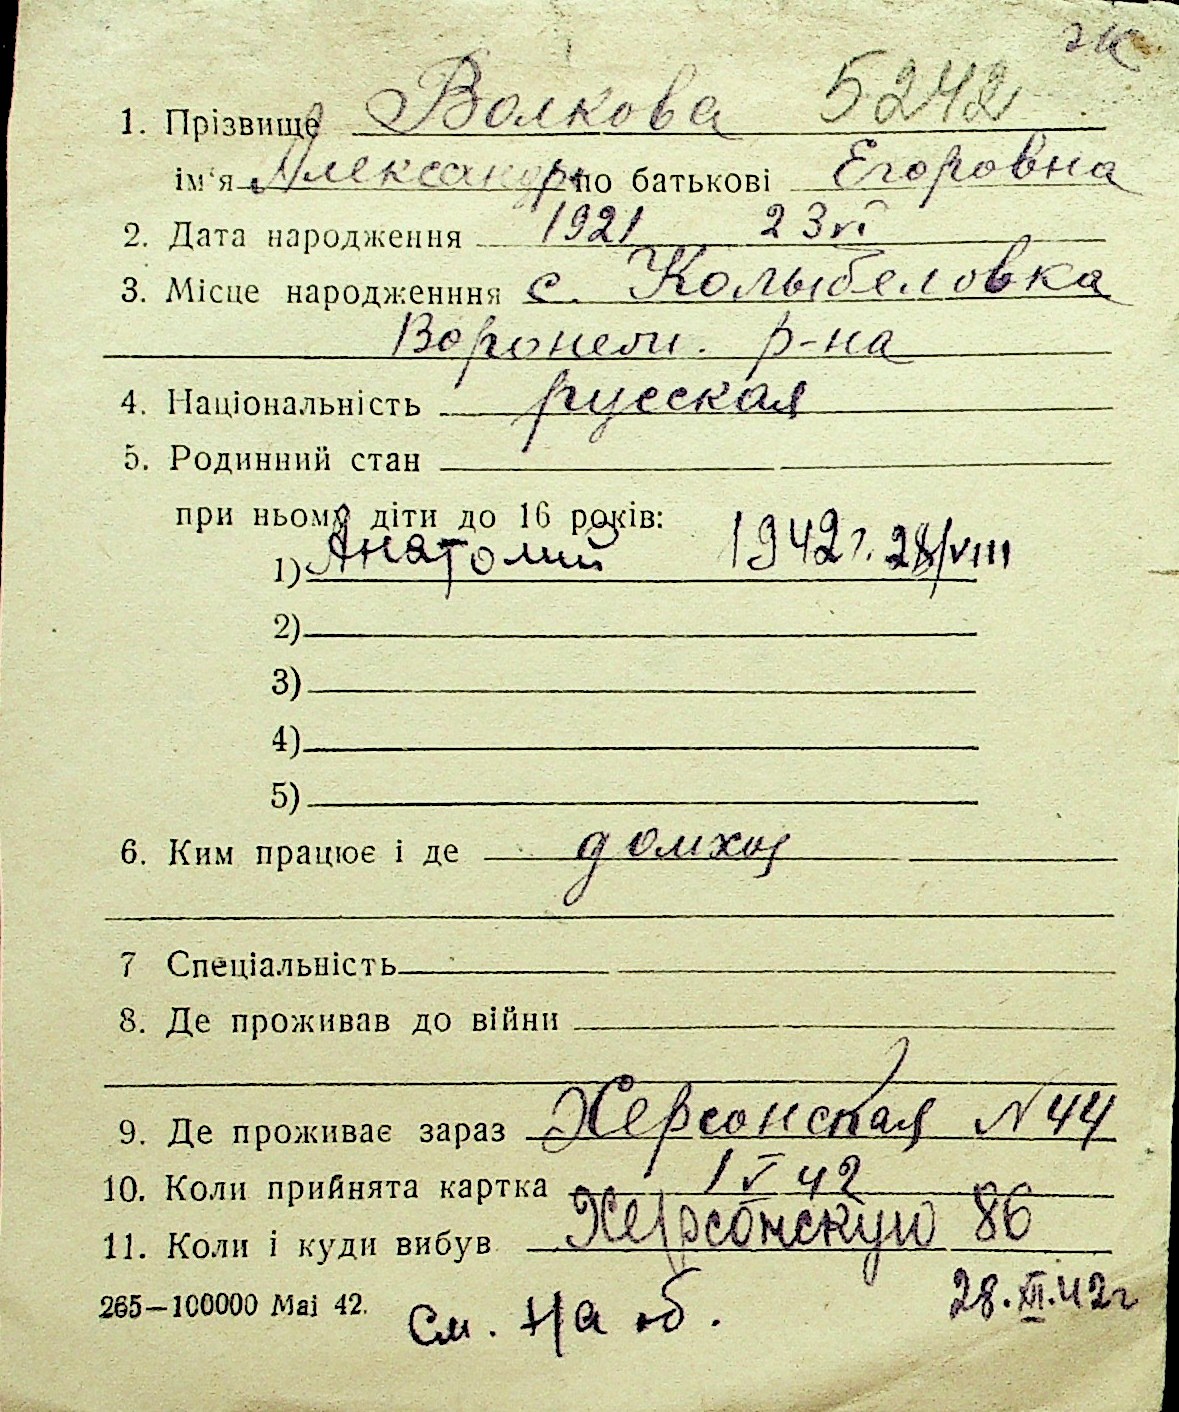 жк
1. Прізвище Волкова 5242
ім'я Александр по батькові Егоровна
2. Дата народження 1921 23 VI
3. Місце народженння с. Колыбеловка
Воронеж. р-на
4. Національність русская
5. Родинний стан
при ньому діти до 16 років:
1) Анатолий 1942 г. 28/VIII
2)
3)
4)
5)
6. Ким працює і де домхоз
7 Спеціальність
8. Де проживав до війни
9. Де проживає зараз Херсонская N 44
10. Коли прийнята картка 1 V 42
11. Коли і куди вибув Херсонскую 86
265—100000 Mai 42. См. на об. 28.XII.42г